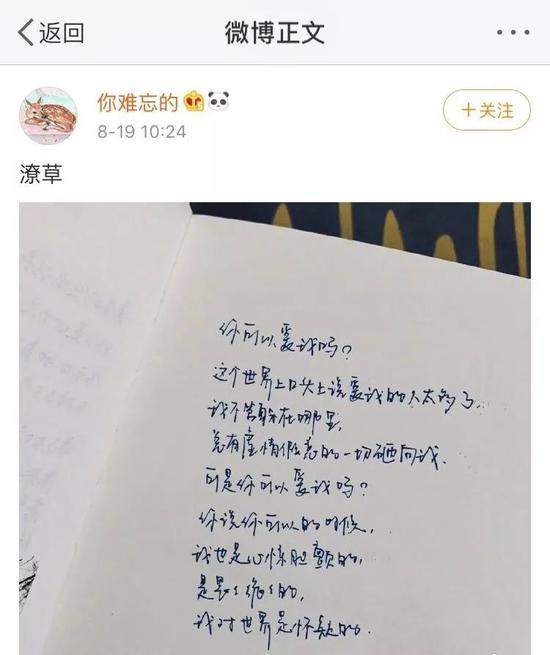 返回
微博正文
你难忘的
+关注
8-19 10:24
潦草
你可以爱我吗?
这个世界上口头上说爱我的人太多了,
我不管躲在哪里,
总有虚情假意的一切砸向我.
可是你可以爱我吗?
你说你可以的时候,
我也是心惊胆颤的,
是晃晃的,
我对世界是怀疑的.